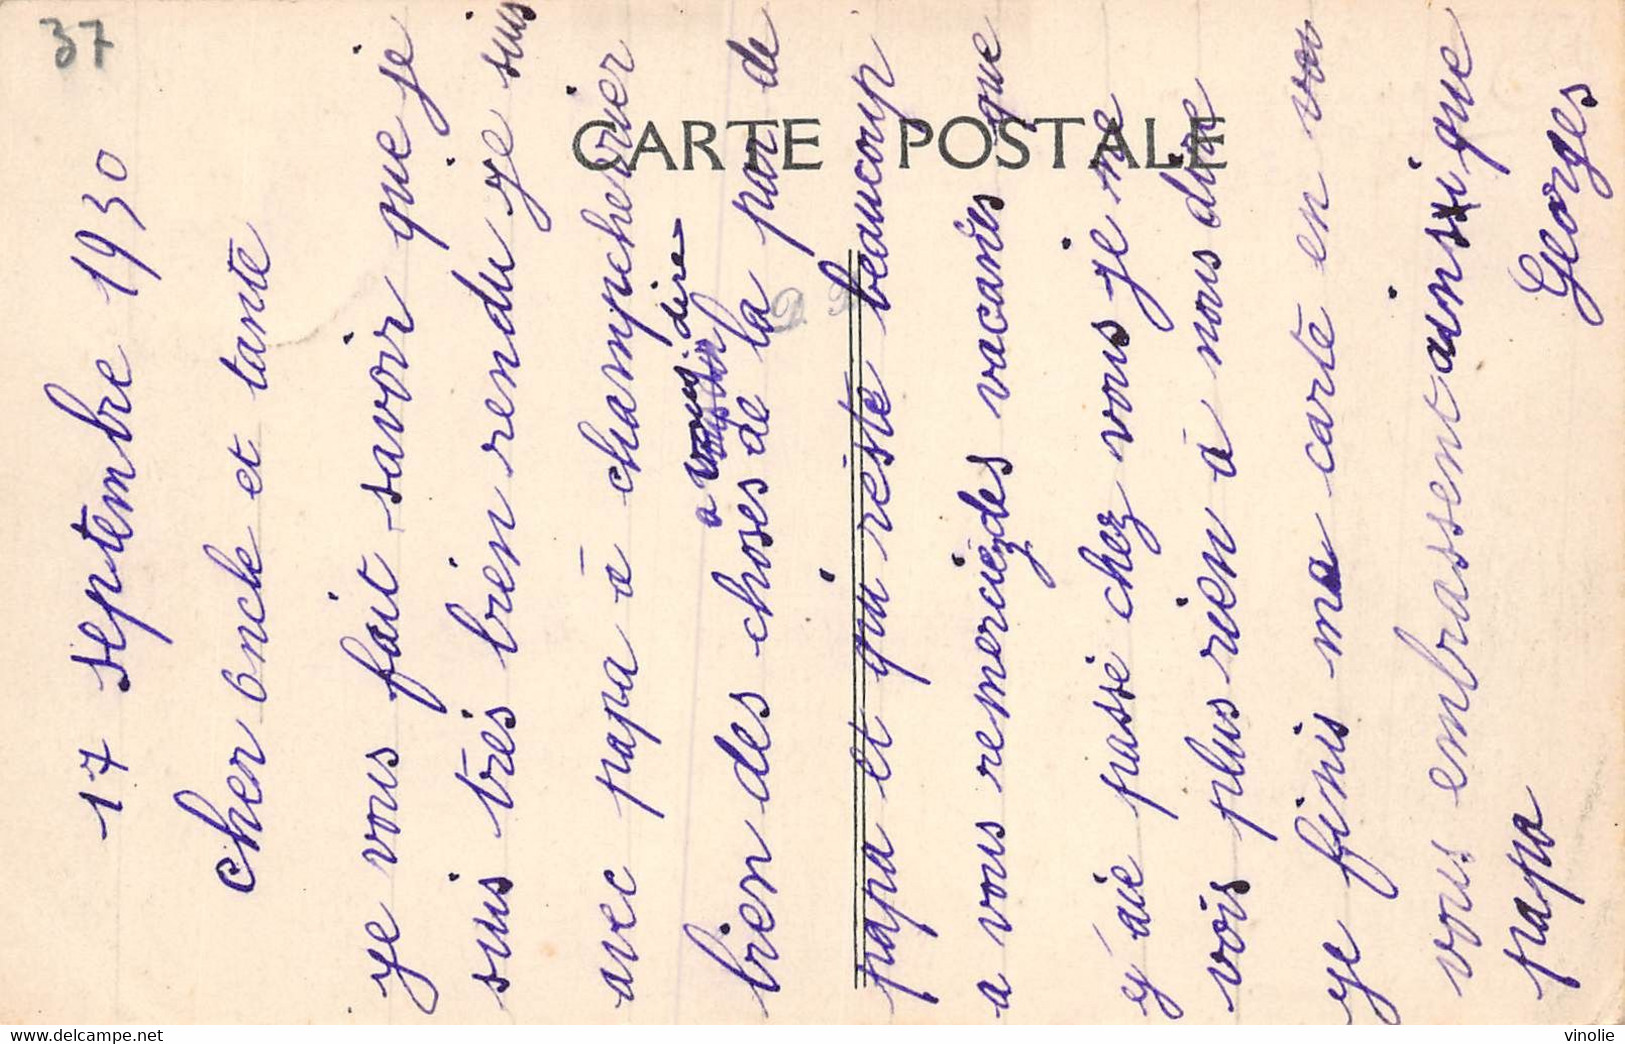 37
CARTE POSTALE
17 septembre 1930
cher oncle et tante
je vous fait savoir que je
suis très bien rendu je suis
avec papa à champchevrier
a vous dire
bien des choses de la par de
papa et qui réste beaucoup
a vous remerciez des vacances que
j'aie passé chez vous je ne
vois plus rien à vous dire
je finis ma carte en vou
vous embrassent ainsi que
papa Georges
vinolie